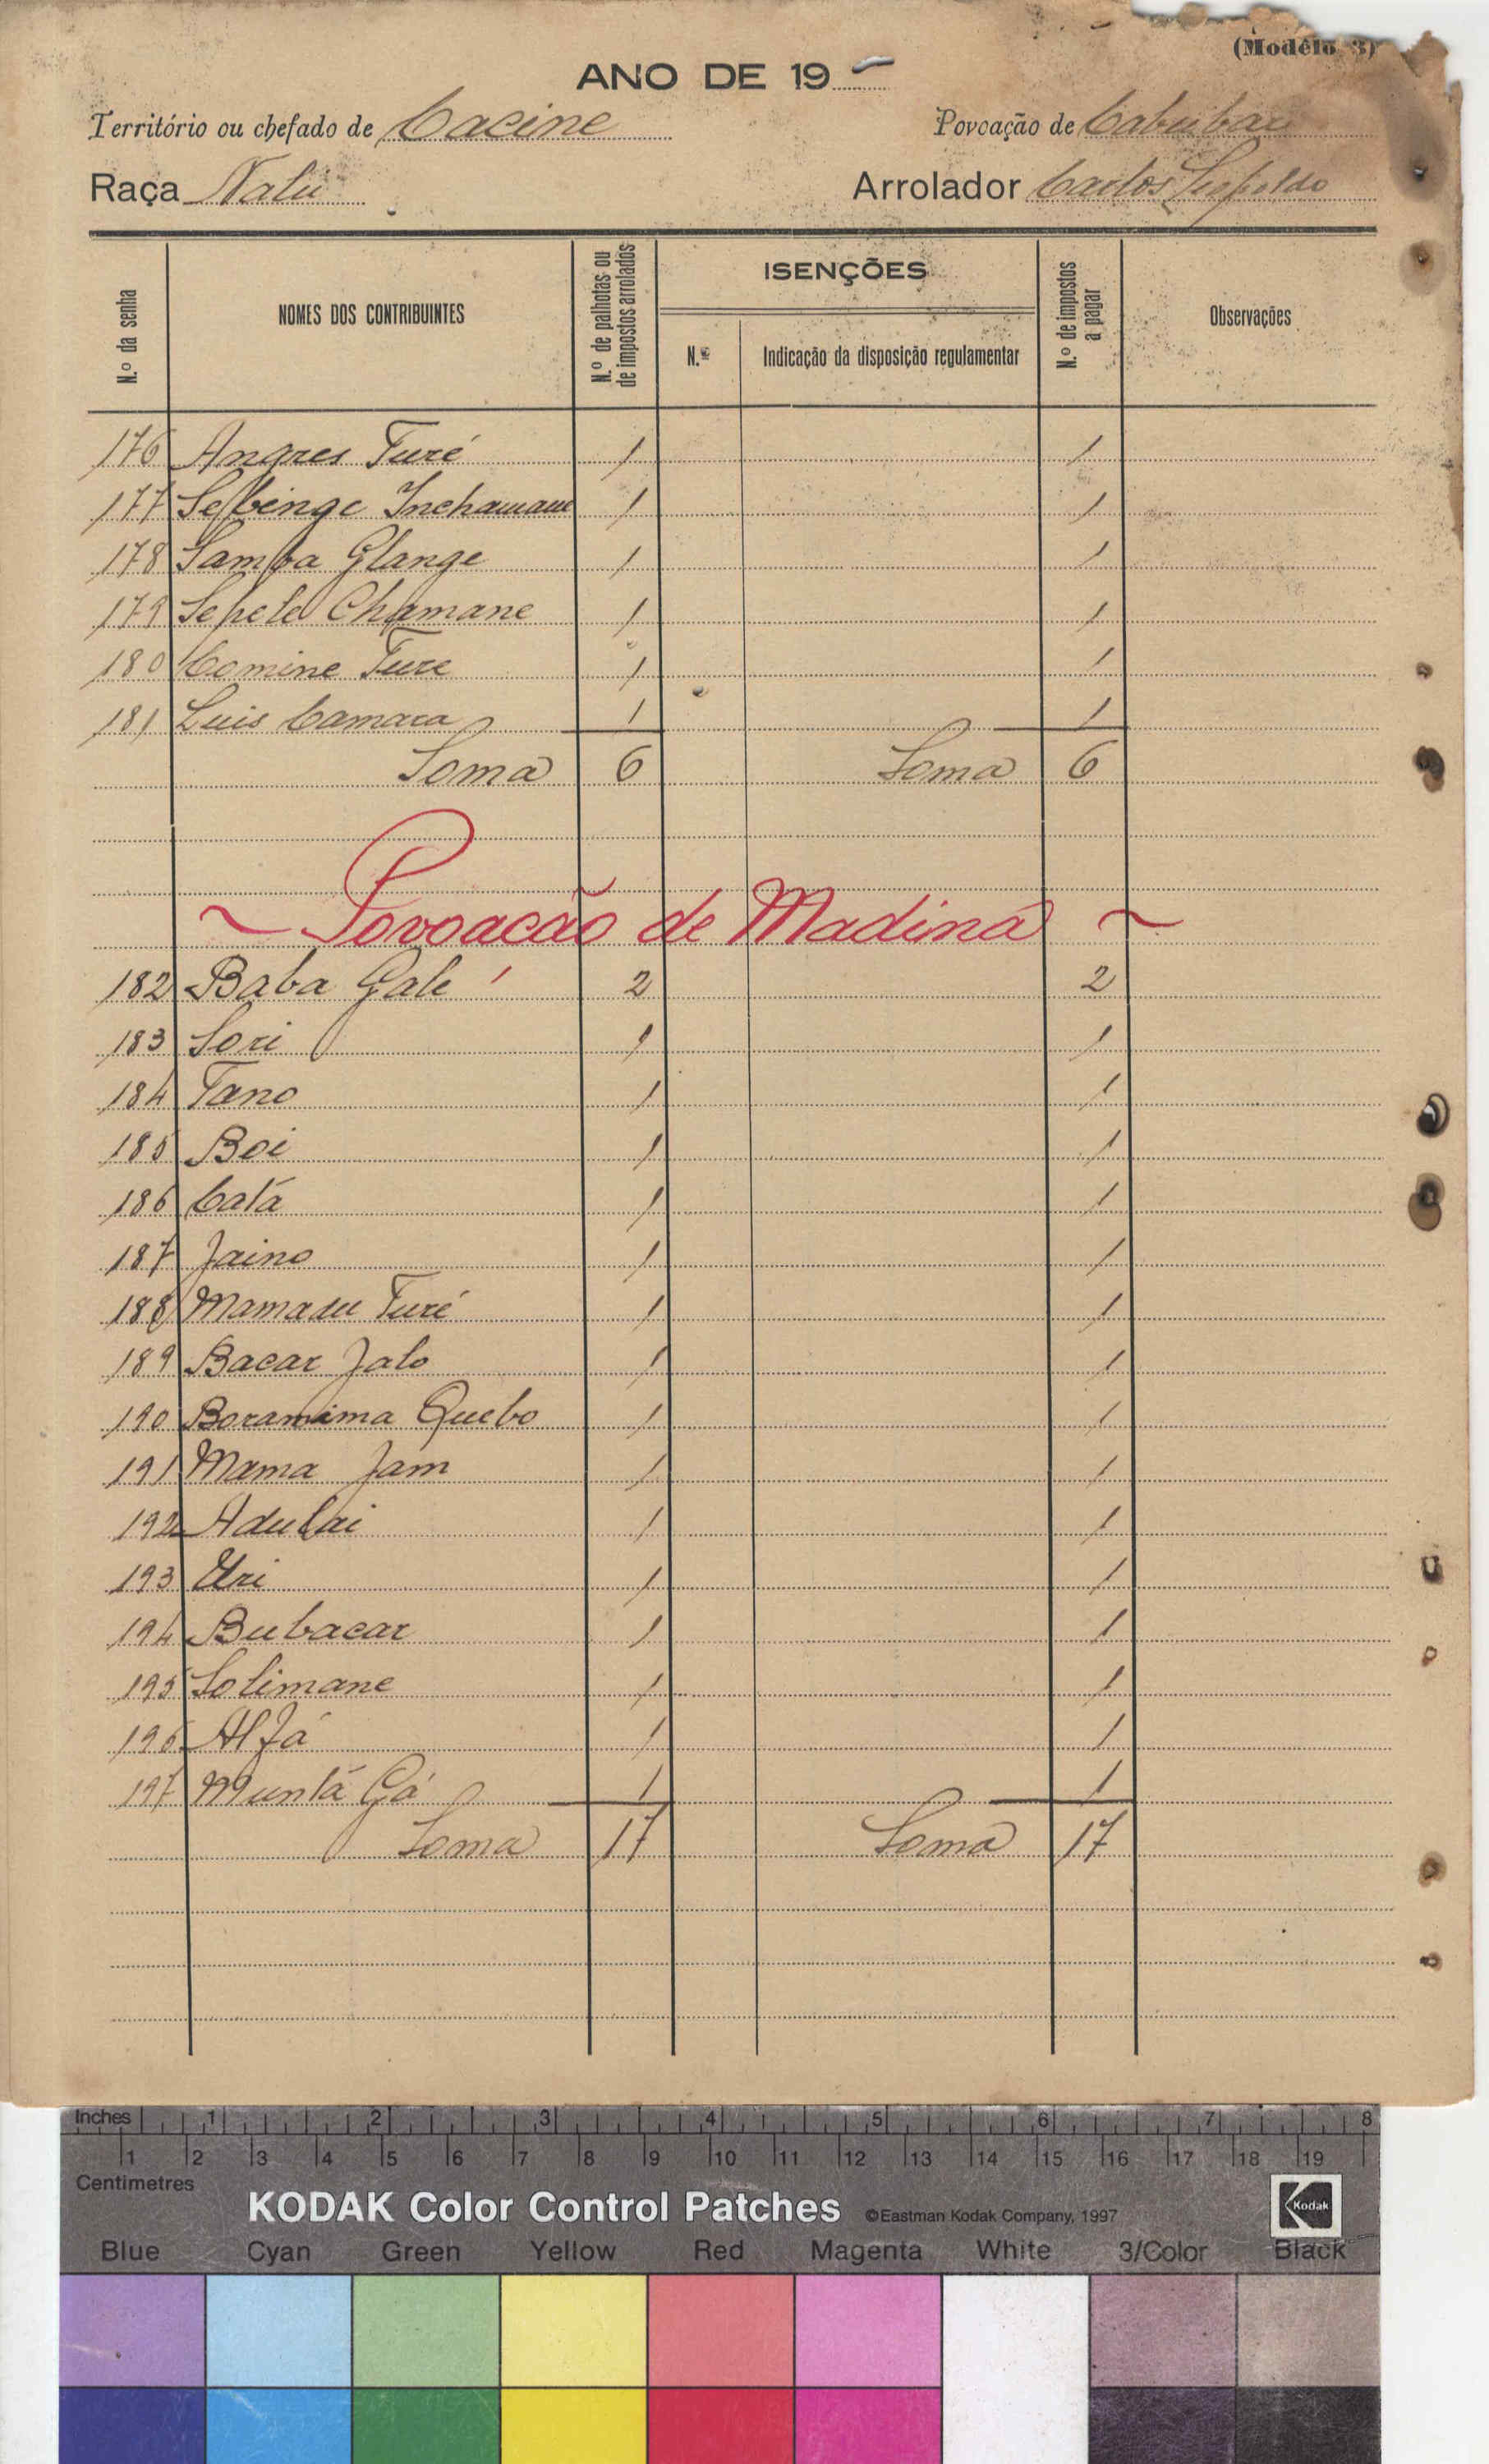 (Modêlo 3)
ANO DE 19
Território ou chefado de Cacine Povoação de
Raça Nalú Arrolador Carlos Leopoldo
N.º da senha NOMES DOS CONTRIBUINTES N.º de palhotas ou de impostos arrolados ISENÇÕES N.º Indicação da disposição regulamentar N.º de impostos a pagar Observações
176 Angres Turé 1 1
177 1 1
178 Samba Glange 1 1
179 Chamane 1 1
180 Comine Ture 1 1
181 Luis Camara 1 1
Soma 6 Soma 6
~ Povoacão de Madina ~
182 Baba Gale 2 2
183 Sori 1 1
184 Tano 1 1
185 Boi 1 1
186 Catá 1 1
187 Jaino 1 1
188 Mamadu Turé 1 1
189 Bacar Jalo 1 1
190 Boramima Quebo 1 1
191 Mama Jam 1 1
192 Adulai 1 1
193 Uri 1 1
194 Bubacar 1 1
195 Solimane 1 1
196 Alfá 1 1
197 Muntá Gá 1 1
Soma 17 Soma 17
Inches 1 2 3 4 5 6 7 8
1 2 3 4 5 6 7 8 9 10 11 12 13 14 15 16 17 18 19
Centimetres
KODAK Color Control Patches ©Eastman Kodak Company, 1997 Kodak
Blue Cyan Green Yellow Red Magenta White 3/Color Black